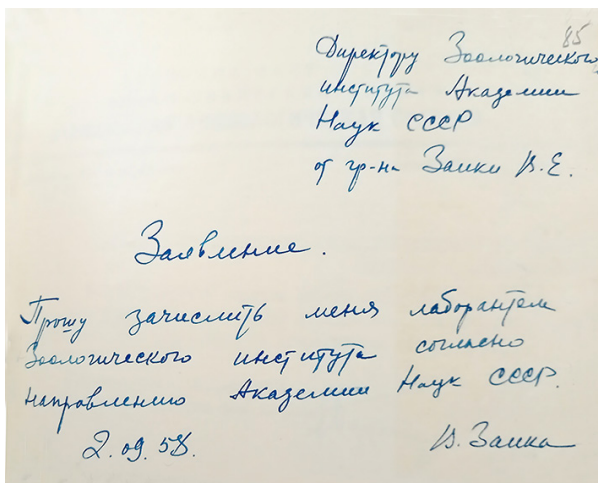 85
Директору Зоологического
института Академии
Наук СССР
от гр-на Заики В.Е.
Заявление.
Прошу зачислить меня лаборантом
Зоологического института согласно
направлению Академии Наук СССР.
2.09.58.
В. Заика